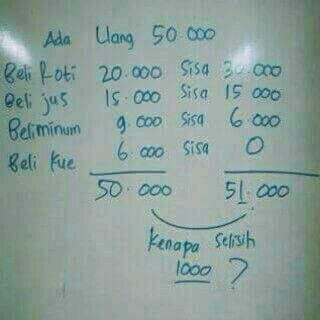 Ada Uang 50.000
Beli Roti 20.000 Sisa 30.000
Beli jus 15.000 Sisa 15 000
Beliminum 9.000 Sisa 6.000
Beli Kue 6.000 Sisa 0
50.000 51.000
Kenapa Selisih
1000 ?